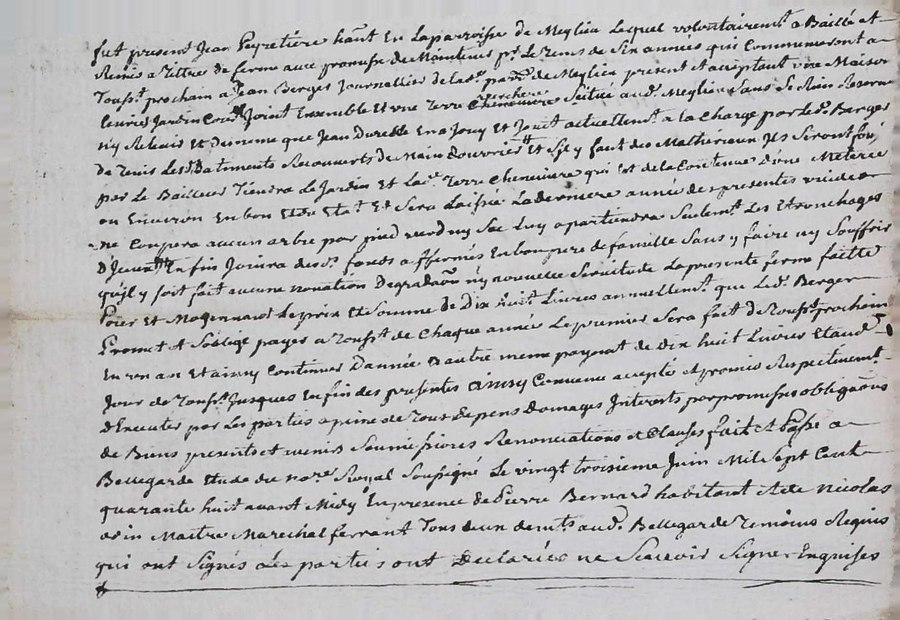 fut present Jean Peyretiere hãnt En Laparroisse de Meglieu Lequel volontairemt. a Baillé et
Remis a Tittre de ferme avec promesse de Maintenir pr. Le tems de Six années qui Commenceront a
Toussts. prochain a Jean Berges Journallier de lad. parse. de Meglieu present et aceiptant une Maison
Ecuries Jardin Cour Joint Ensemble Et une Terre verchere Cheneviere Scitué aud. Meglieu Sans Se Rien Reserver
ny Retenir Et De meme que Jean Duresse En a Jouy et Jouit actuellemt. a la Charge par Led. Berges
de Tenir Lesd. Batiments Recouverts de Main d'ouvrier Et S'il y faut des Matherieaux Ils Seront fournis
par Le Bailleur Tiendra Le Jardin et Lade. Terre Cheneviere qui Est de la Contenue d'une Meterée
ou Environ En bon Etat Et Sera Laissée La derniere année des presentes vuide
ne Coupera aucun arbre par pied verd ny Sec Luy apartiendra Seulemt. Les Etronchages
Enfin Jouira desd. fonds affermés En bon pere de famille Sans y faire ny Souffrir
qu'il y soit fait aucune novation Degradaõn ny nouvelle Servitude La presente ferme faitte
Pour Et Moyennant Le prix Et Somme de Dix huit Livres annuellemt. que Led. Berges
Promet et S'oblige payer a Toussts. de Chaque année Le premier Sera fait de Toussts. prochain
En un an Et ainsy Continuer D'année a autre meme payement de Dix huit Livres Et aud.
Jour de Toussts. Jusques En fin des presentes ainsy Convenu accepté et promis Respectivemt.
d'Executer par Les parties a peine de Tous Depens Domages Interets par promesses obligaõns
de Biens presents et avenir Soumissions Renonciations et Clauses fait et Passé a
Bellegarde Etude du nore. Royal Soussigné Le vingt troisieme Juin Mil Sept Cent
quarante huit avant Midy En presence de Pierre Bernard habitant et de Nicolas
Maitre Marechal ferrant Tous deux aud. Bellegarde Temoins Requis
qui ont Signés Les parties ont Declarées ne Scavoir Signer Enquises